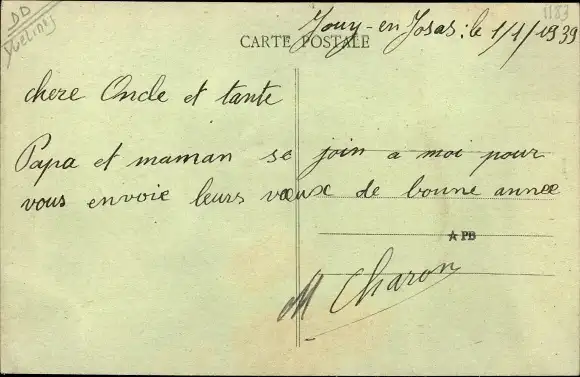 1183
DD
Yvelines
Jouy-en Josas : le 1/1/1939
CARTE POSTALE
chere Oncle et tante
Papa et maman se join a moi pour
vous envoie leurs vœux de bonne année
★ PB
M Charon